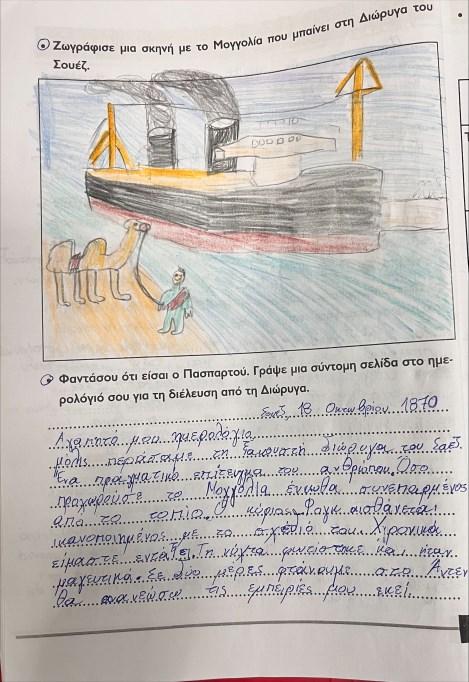 Ζωγράφισε μια σκηνή με το Μογγολία που μπαίνει στη Διώρυγα του
Σουέζ.
Φαντάσου ότι είσαι ο Πασπαρτού. Γράψε μια σύντομη σελίδα στο ημε-
ρολόγιό σου για τη διέλευση από τη Διώρυγα.
Σουέζ, 18 Οκτωβρίου 1870
Αγαπητό μου ημερολόγιο
μόλις περάσαμε τη ξακουστή διώρυγα του Σουέζ.
Ένα πραγματικό επίτευγμα του ανθρώπου. Όσο
προχωρούσε το Μογγολία ένιωθα συνεπαρμένος
από το τοπίο. Ο κύριος Φογκ αισθάνεται
ικανοποιημένος με το σχέδιό του. Χρονικά
είμαστε εντάξει. Τη νύχτα και ήταν
μαγευτικά. Σε δύο μέρες φτάνουμε στο Άντεν
Θα ανανεώσω τις εμπειρίες μου εκεί.